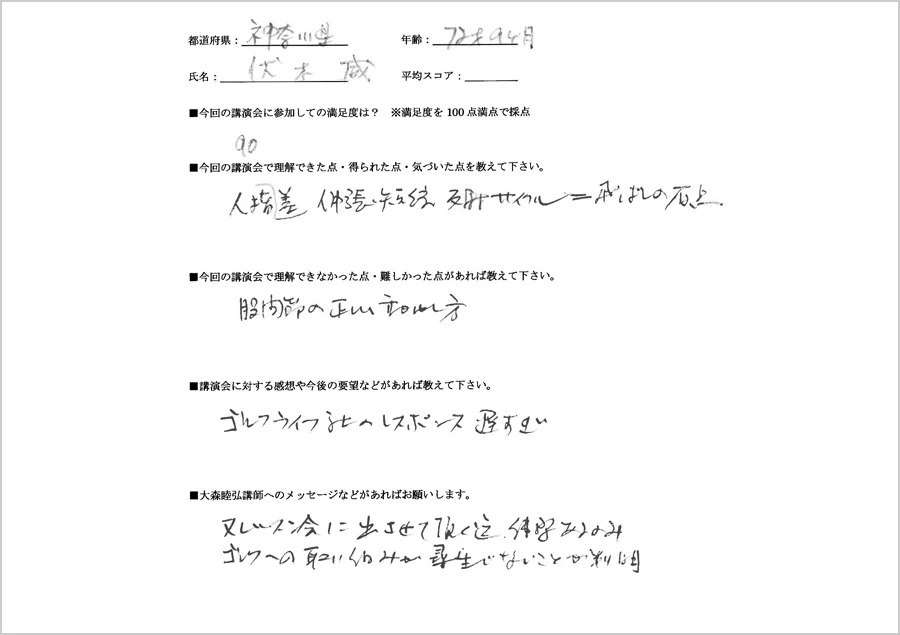 都道府県：神奈川県 年齢：72才9ヶ月
氏名：伏木 蔵 平均スコア：
■今回の講演会に参加しての満足度は？ ※満足度を100点満点で採点
90
■今回の講演会で理解できた点・得られた点・気づいた点を教えて下さい。
人指差 伸張・短縮 反射サイクル＝飛ばしの原点.
■今回の講演会で理解できなかった点・難しかった点があれば教えて下さい。
股関節の正しい
■講演会に対する感想や今後の要望などがあれば教えて下さい。
ゴルフライフ社へのレスポンス 遅すぎ
■大森睦弘講師へのメッセージなどがあればお願いします。
又レッスン会に出させて頂く迄
ゴルフへの取り組みが尋生でないことが判明